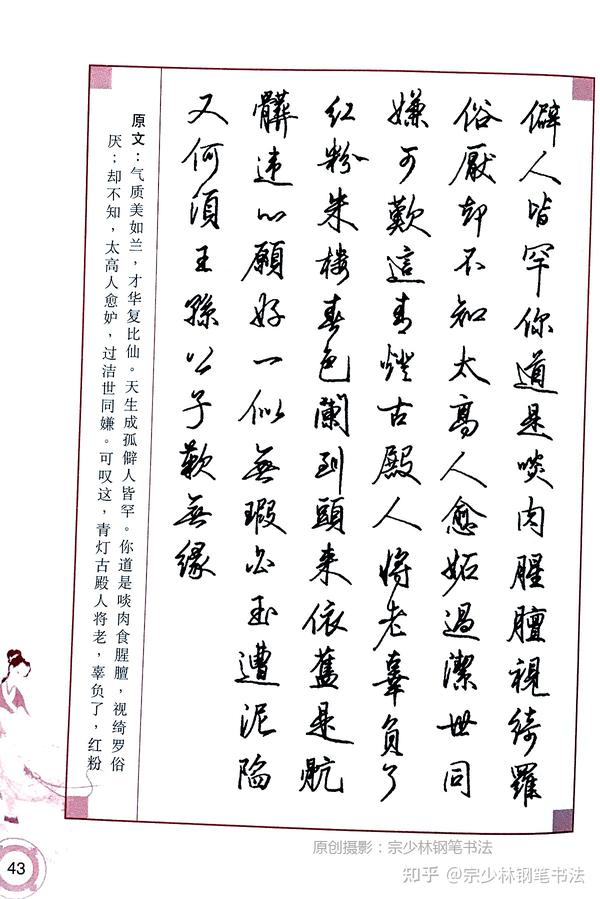 僻人皆罕你道是啖肉腥膻視綺羅
俗厭却不知太高人愈妬過潔世同
嫌可歎這青燈古殿人將老辜負了
紅粉朱樓春色闌到頭来依舊是骯
髒違心願好一似無瑕白玉遭泥陷
又何須王孫公子歎無緣
原文：气质美如兰，才华复比仙。天生成孤僻人皆罕。你道是啖肉食腥膻，视绮罗俗
厌；却不知，太高人愈妒，过洁世同嫌。可叹这，青灯古殿人将老，辜负了，红粉
43
原创摄影：宗少林钢笔书法
知乎 @宗少林钢笔书法